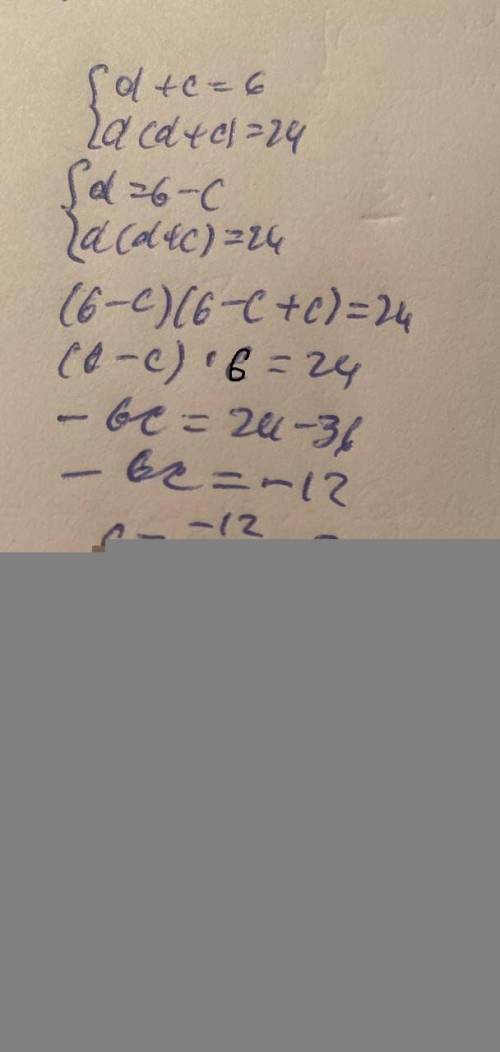 {d + c = 6
{d (d + c) = 24
{d = 6 - c
{d (d + c) = 24
(6 - c)(6 - c + c) = 24
(6 - c) · 6 = 24
- 6c = 24 - 36
- 6c = -12
-12